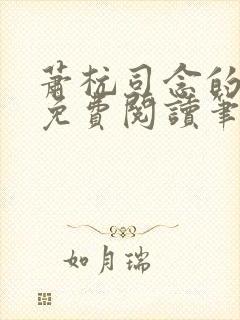 蕭杭司念的
免費閱讀筆
如月瑞